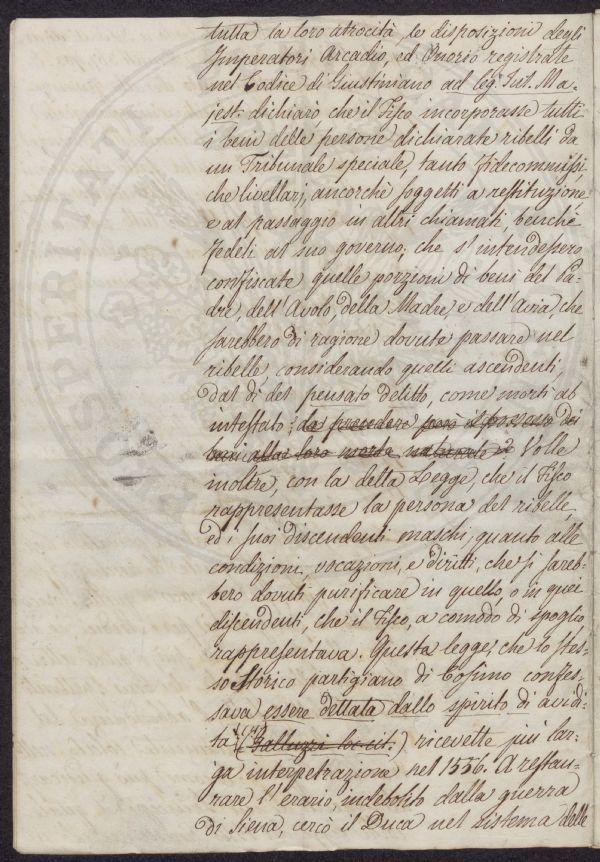 tutta la loro atrocità, le disposizioni degli
Imperatori Arcadio, ed Onorio registrate
nel Codice di Giustiniano ad leg. Jul. Ma-
jest. dichiarò, che il Fisco incorporasse tutti
i beni delle persone dichiarate ribelli da
un Tribunale speciale, tanto fidecommissi,
che livellarj, ancorchè soggetti a restituzione
e al passaggio in altri chiamati benchè
fedeli al suo governo; che s'intendessero
confiscate quelle porzioni di beni del Pa-
dre, dell'Avolo, della Madre, e dell'Avia, che
sarebbero di ragione dovute passare nel
ribelle, considerando quelli ascendenti
dal dì del pensato delitto, come morti ab
intestato; da prendere però il possesso dei
beni alla loro morte naturale. Volle
inoltre, con la detta Legge, che il Fisco
rappresentasse la persona del ribelle,
ed i suoi discendenti maschi, quanto alle
condizioni, vocazioni, e diritti, che si sareb-
bero dovuti purificare in quello, o in quei
discendenti, che il Fisco, a comodo di spoglio
rappresentava. Questa legge, che lo stes-
so Storico partigiano di Cosimo confes-
sava essere dettata dallo spirito di avidi-
tà (Galluzzi loc. cit.) ricevette più lar-
ga interpetrazione nel 1556. A restau-
rare l'erario, indebolito dalla guerra
di Siena, cercò il Duca nel sistema delle